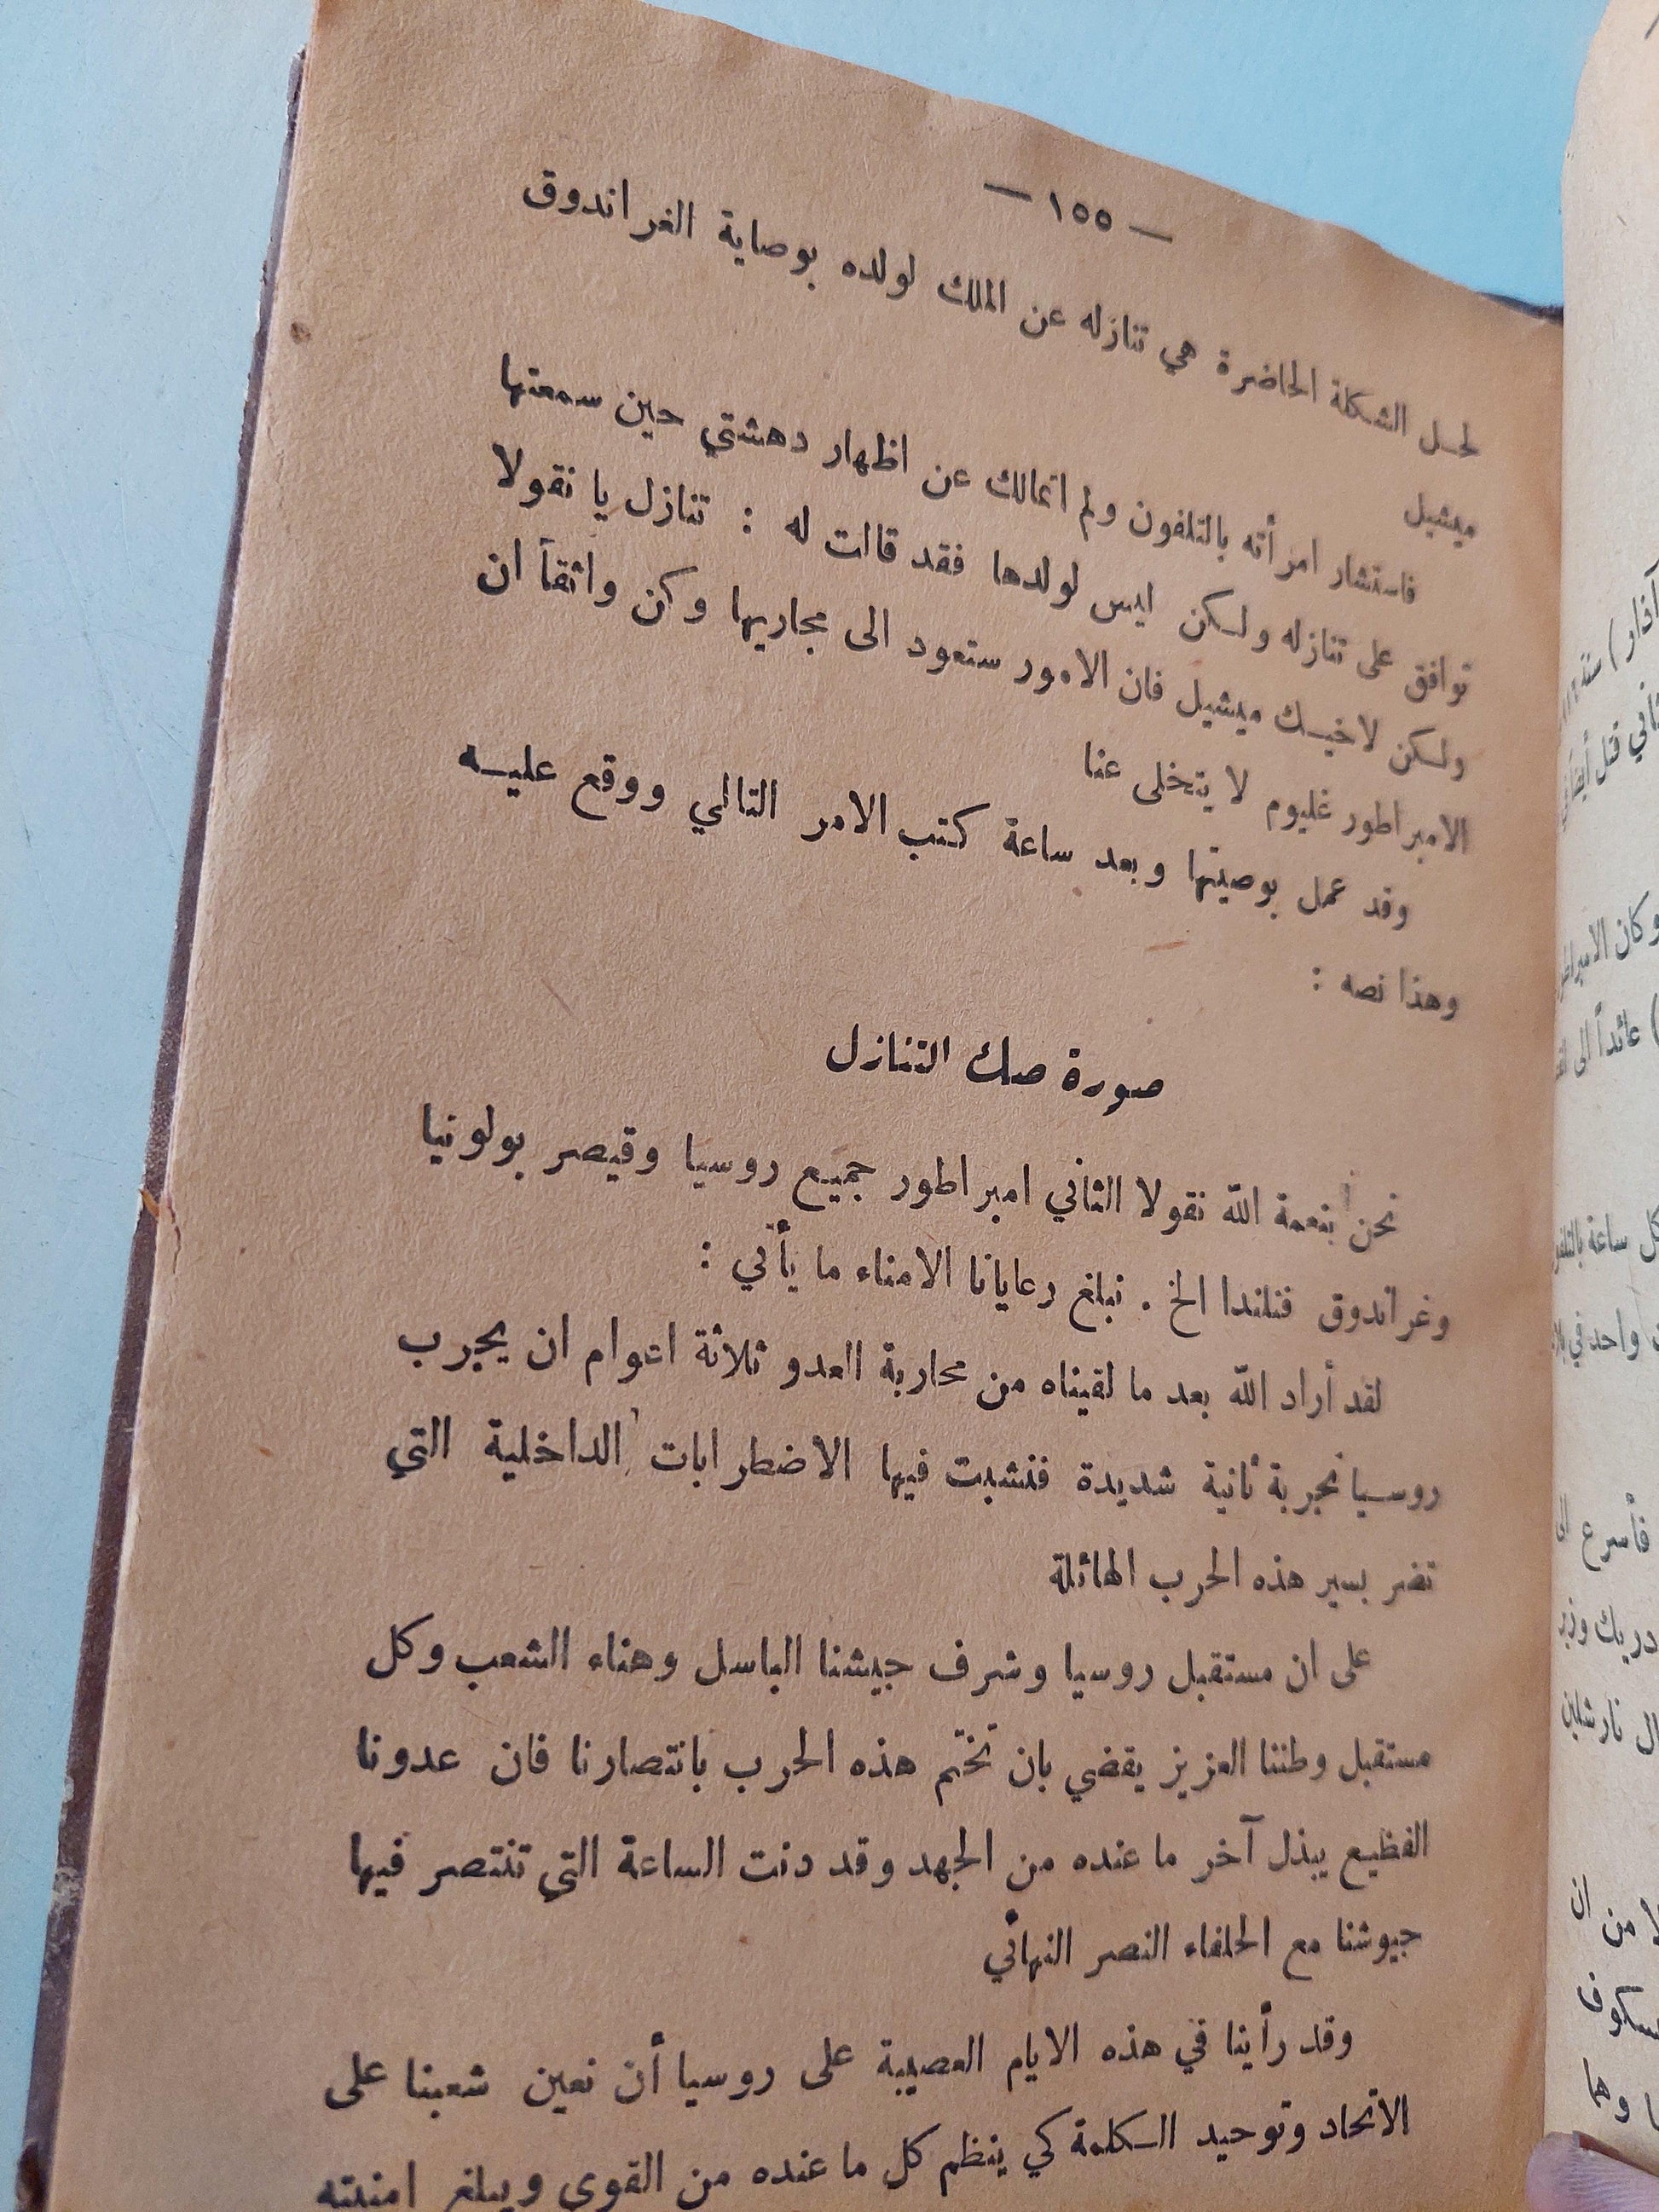 — ١٥٥ —
لحل الشكلة الحاضرة هي تنازله عن الملك لولده بوصاية الغراندوق
ميشيل
فاستشار امرأته بالتلفون ولم اتمالك عن اظهار دهشتي حين سمعتها
توافق على تنازله ولكن ليس لولدها فقد قالت له : تنازل يا نقولا
ولكن لاخيك ميشيل فان الامور ستعود الى مجاريها وكن واثقاً ان
الامبراطور غليوم لا يتخلى عنا
وقد عمل بوصيتها وبعد ساعة كتب الامر التالي ووقع عليه
وهذا نصه :
صورة صك التنازل
نحن بنعمة الله نقولا الثاني امبراطور جميع روسيا وقيصر بولونيا
وغراندوق فنلندا الخ . نبلغ رعايانا الامناء ما يأتي :
لقد أراد الله بعد ما لقيناه من محاربة العدو ثلاثة اعوام ان يجرب
روسيا تجربة ثانية شديدة فنشبت فيها الاضطرابات الداخلية التي
تضر بسير هذه الحرب الهائلة
على ان مستقبل روسيا وشرف جيشنا الباسل وهناء الشعب وكل
مستقبل وطننا العزيز يقضي بان تختم هذه الحرب بانتصارنا فان عدونا
الفظيع يبذل آخر ما عنده من الجهد وقد دنت الساعة التي تنتصر فيها
جيوشنا مع الحلفاء النصر النهائي
وقد رأينا في هذه الايام العصيبة على روسيا أن نعين شعبنا على
الاتحاد وتوحيد الكلمة كي ينظم كل ما عنده من القوى ويبلغ امنيته
آذار ) سنة
ثاني قتل أيضاً
وكان الامبراطور
) عائداً الى
كل ساعة بالتلفو
واحد في
فأسرع الى
دريك وزير
ال نارشلين
لا من ان
سكوف
وهما